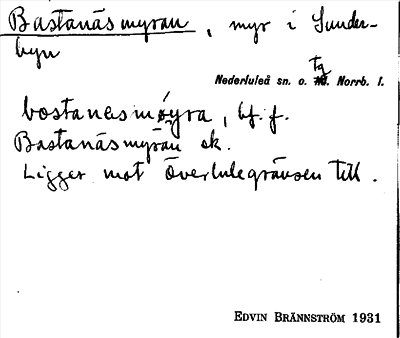 Bastanäsmyran, myr i Sunder-
byn
Nederluleå sn. o. tg. Norrb. l.
bostanesmøyra, bf. f.
Bastanäsmyran ek.
Ligger mot Överlulegränsen till.
EDVIN BRÄNNSTRÖM 1931